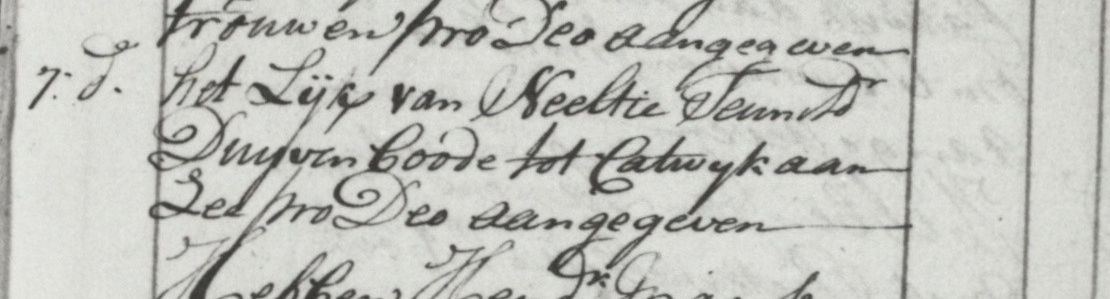 trouwen pro Deo aangegeven
7. d.o het Lijk van Neeltie Teunisd.r
Duyvenboode tot Catwyk aan
Zee pro Deo aangegeven
Hebben Hend.r